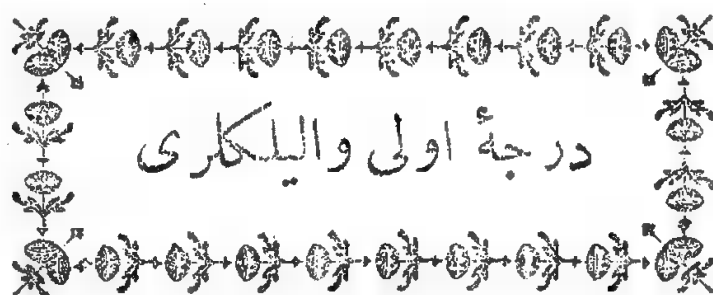 درجۀ اولی والیلکلری